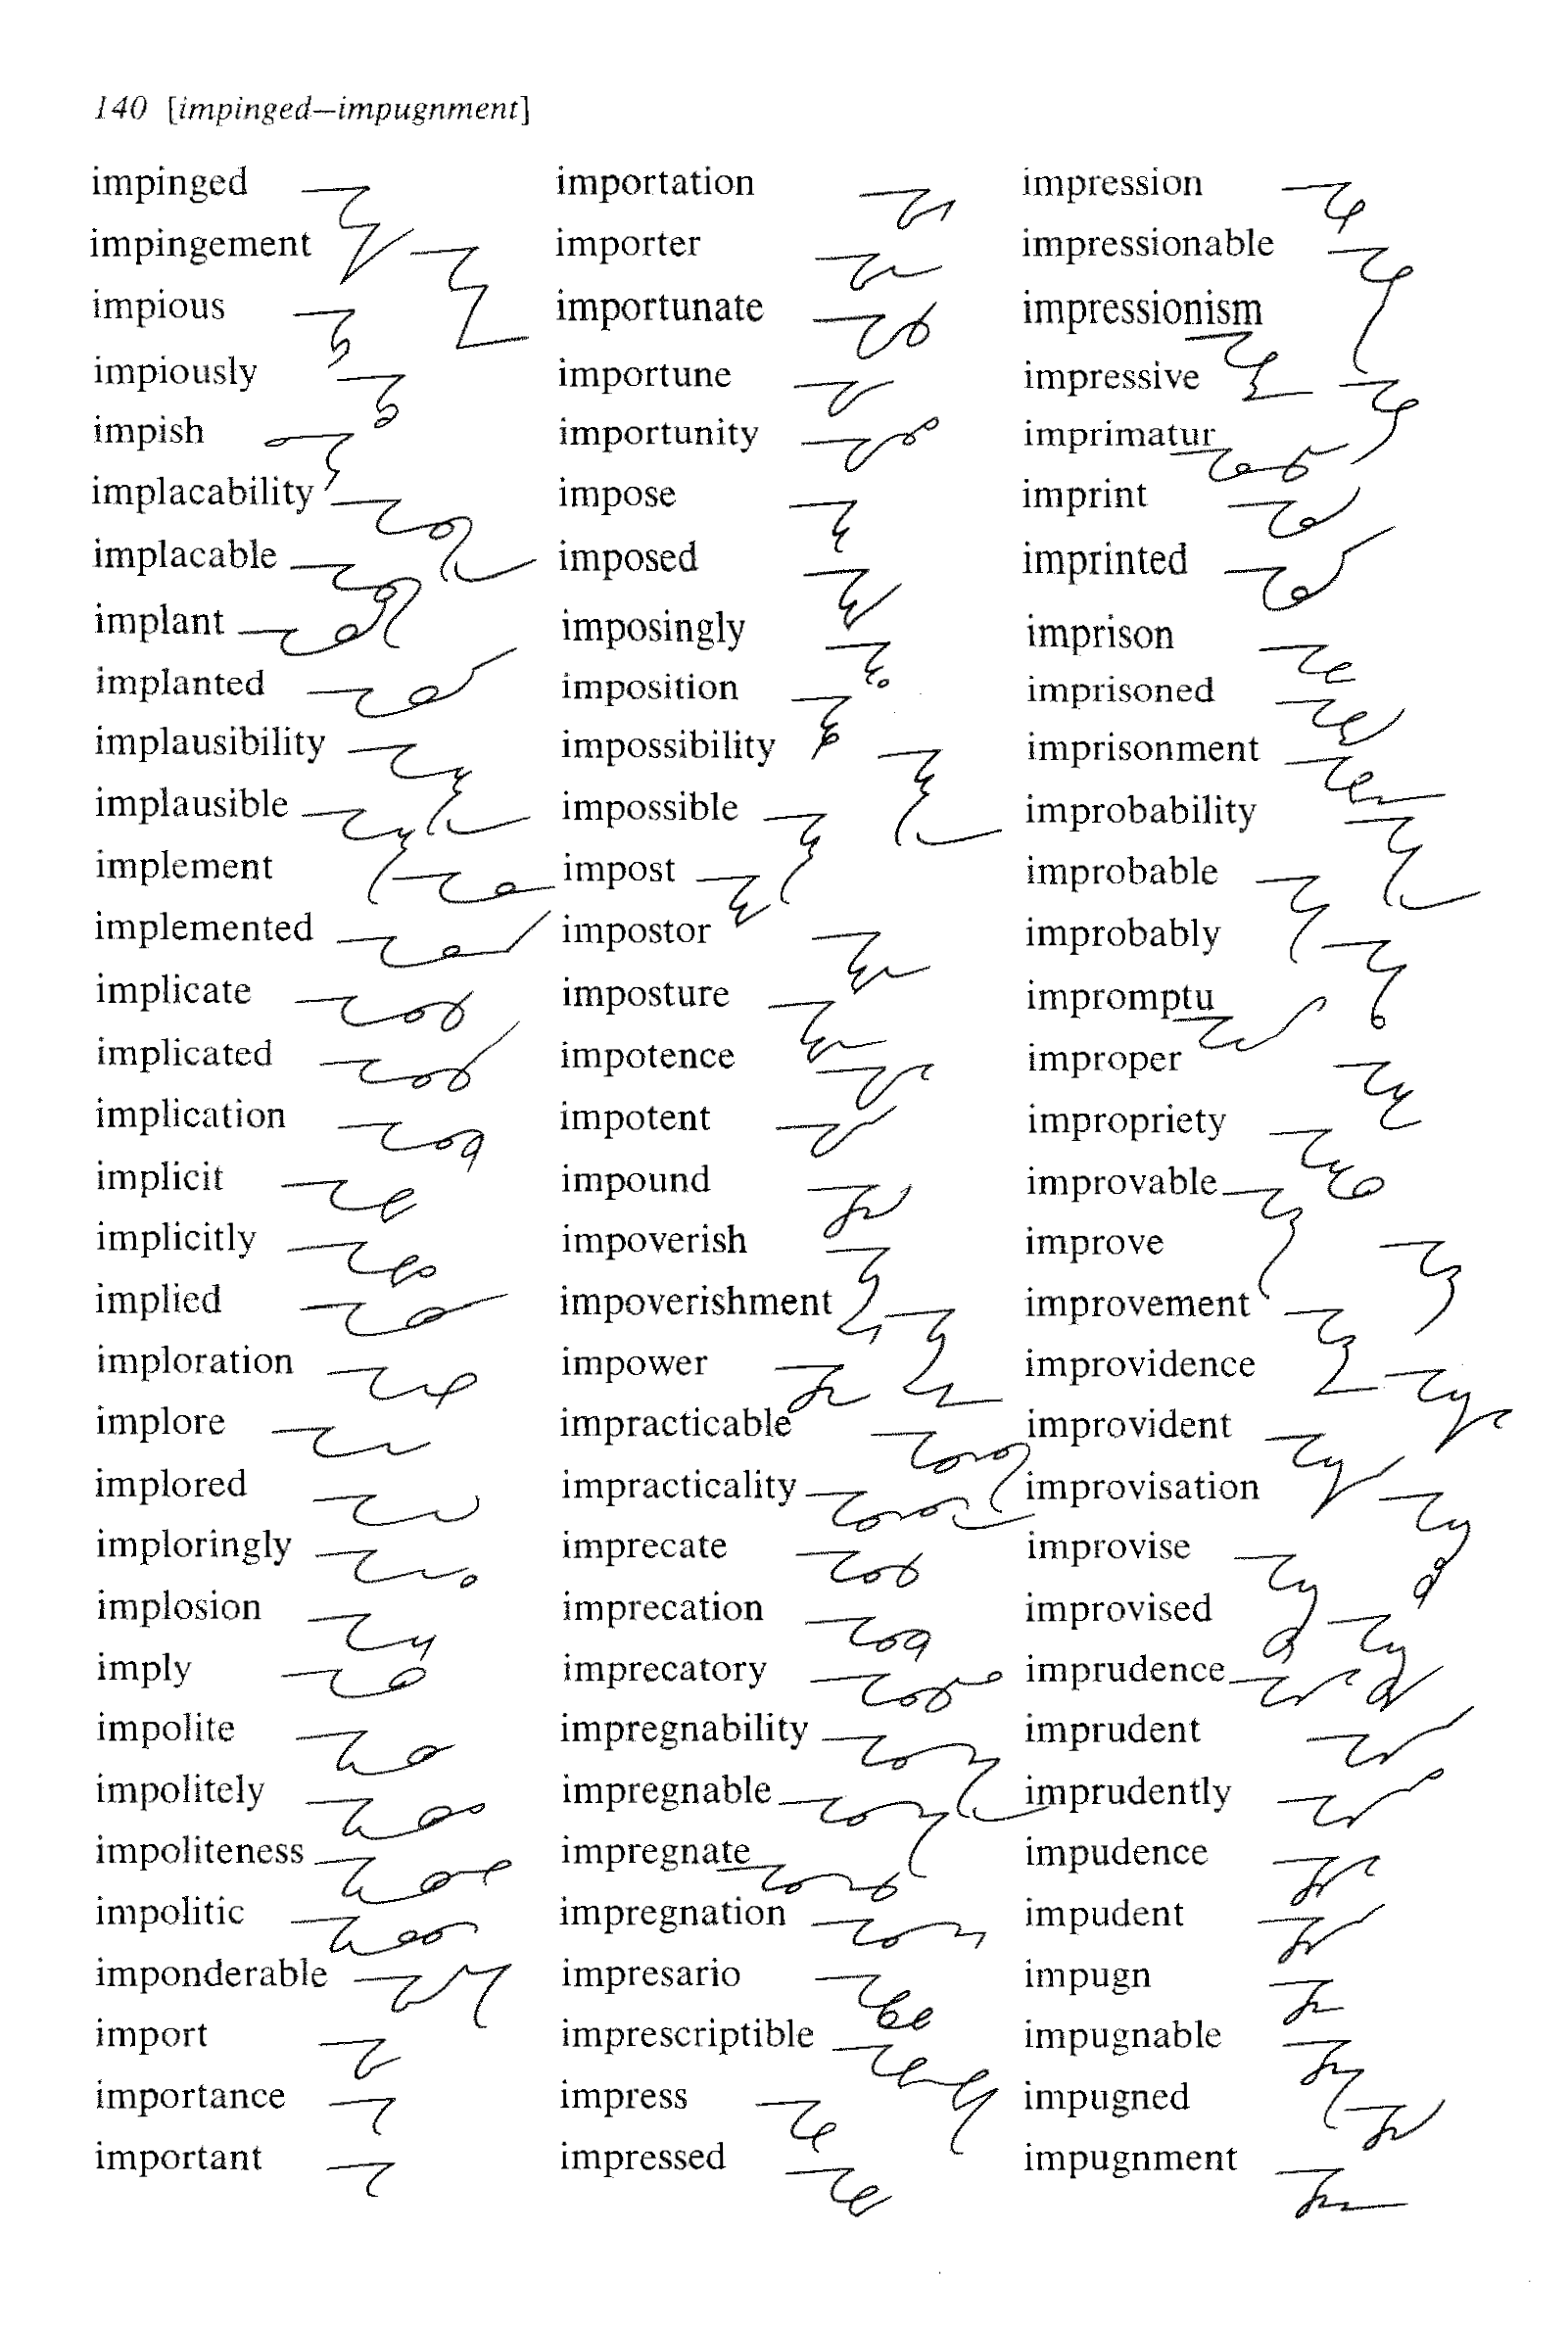 140 [impinged–impugnment]
impinged
impingement
impious
impiously
impish
implacability
implacable
implant
implanted
implausibility
implausible
implement
implemented
implicate
implicated
implication
implicit
implicitly
implied
imploration
implore
implored
imploringly
implosion
imply
impolite
impolitely
impoliteness
impolitic
imponderable
import
importance
important
importation
importer
importunate
importune
importunity
impose
imposed
imposingly
imposition
impossibility
impossible
impost
impostor
imposture
impotence
impotent
impound
impoverish
impoverishment
impower
impracticable
impracticality
imprecate
imprecation
imprecatory
impregnability
impregnable
impregnate
impregnation
impresario
imprescriptible
impress
impressed
impression
impressionable
impressionism
impressive
imprimatur
imprint
imprinted
imprison
imprisoned
imprisonment
improbability
improbable
improbably
impromptu
improper
impropriety
improvable
improve
improvement
improvidence
improvident
improvisation
improvise
improvised
imprudence
imprudent
imprudently
impudence
impudent
impugn
impugnable
impugned
impugnment